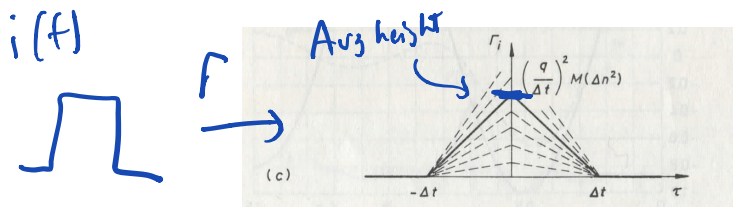 i(t)
Avg height
Γ
Γi
(q/Δt)² M(Δn²)
(c)
-Δt
Δt
τ